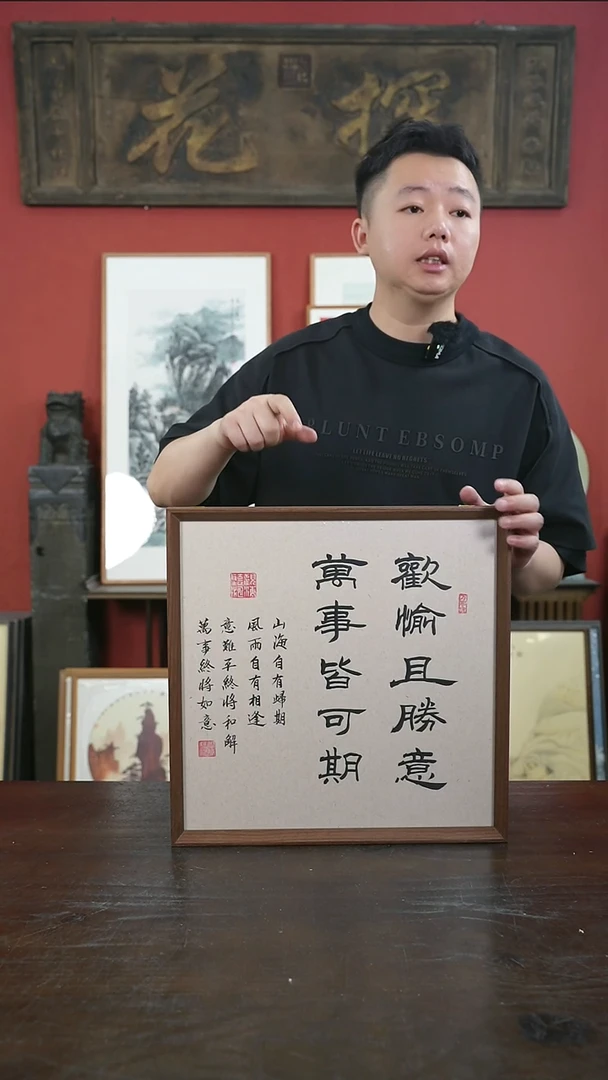 探花
歡愉且勝意
萬事皆可期
山海自有歸期
風雨自有相逢
意難平終將和解
萬事終將如意
LUNT EBSOMP